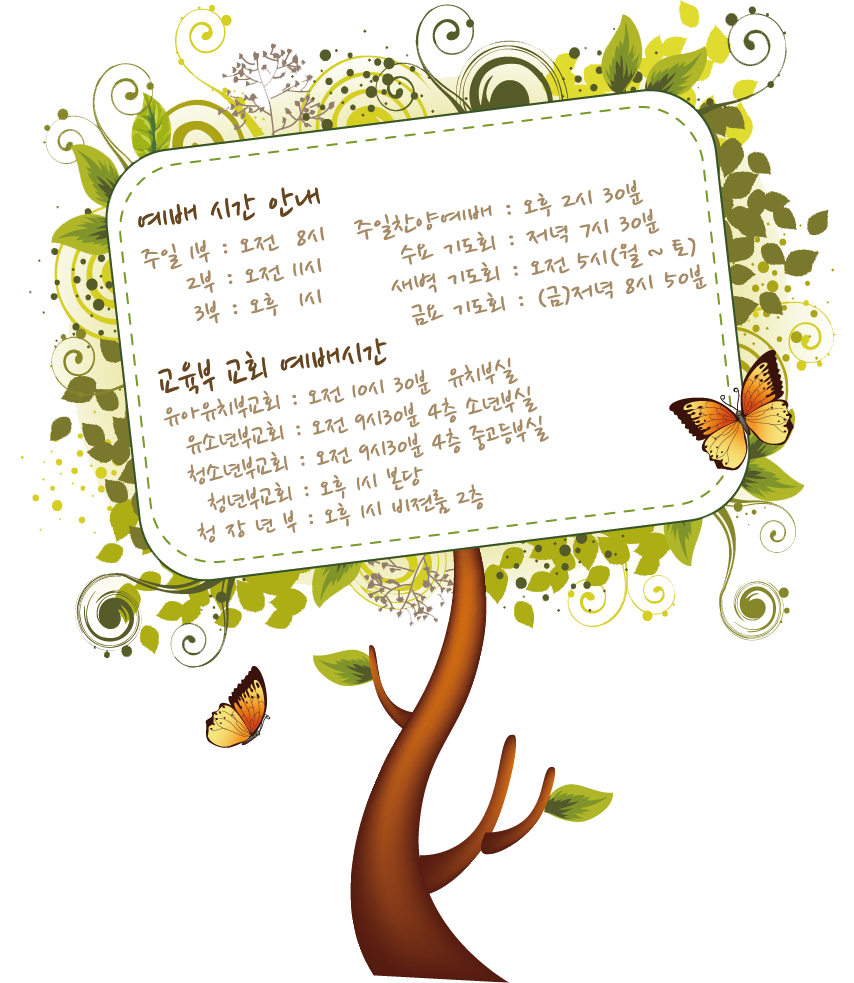 예배 시간 안내
주일 1부 : 오전 8시
2부 : 오전 11시
3부 : 오후 1시
주일찬양예배 : 오후 2시 30분
수요 기도회 : 저녁 7시 30분
새벽 기도회 : 오전 5시(월 ~ 토)
금요 기도회 : (금)저녁 8시 50분
교육부 교회 예배시간
유아유치부교회 : 오전 10시 30분 유치부실
유소년부교회 : 오전 9시30분 4층 소년부실
청소년부교회 : 오전 9시30분 4층 중고등부실
청년부교회 : 오후 1시 본당
청 장 년 부 : 오후 1시 비젼룸 2층